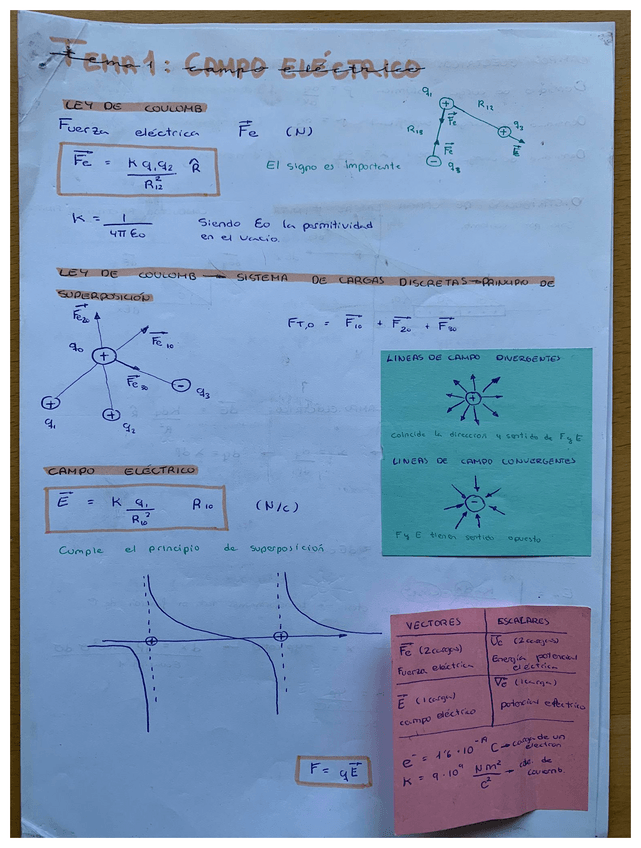 TEMA 1: CAMPO ELÉCTRICO
LEY DE COULOMB
Fuerza eléctrica Fe (N)
Fe = K q1 q2 / R12² R̂
El signo es importante
q1 R12 q2 Fe R13 Fe q3
K = 1 / 4π ε0
Siendo ε0 la permitividad
en el vacío.
LEY DE COULOMB → SISTEMA DE CARGAS DISCRETAS → PRINCIPIO DE
SUPERPOSICIÓN
Fe20 Fe10 q0 Fe30 q3 q1 q2
FT,0 = F10 + F20 + F30
LINEAS DE CAMPO DIVERGENTES
coincide la direccion y sentido de F y E
LINEAS DE CAMPO CONVERGENTES
F y E tienen sentido opuesto
CAMPO ELÉCTRICO
E = K q1 / R10² R10 (N/C)
Cumple el principio de superposición
F = qE
VECTORES ESCALARES
Fe (2 cargas) Ue (2 cargas)
Fuerza eléctrica Energía potencial
eléctrica
E (1 carga) Ve (1 carga)
campo eléctrico potencial eléctrico
e⁻ = 1'6 · 10 C → carga de un
electrón
K = 9 · 10⁹ Nm² / C² → cte. de
coulomb.